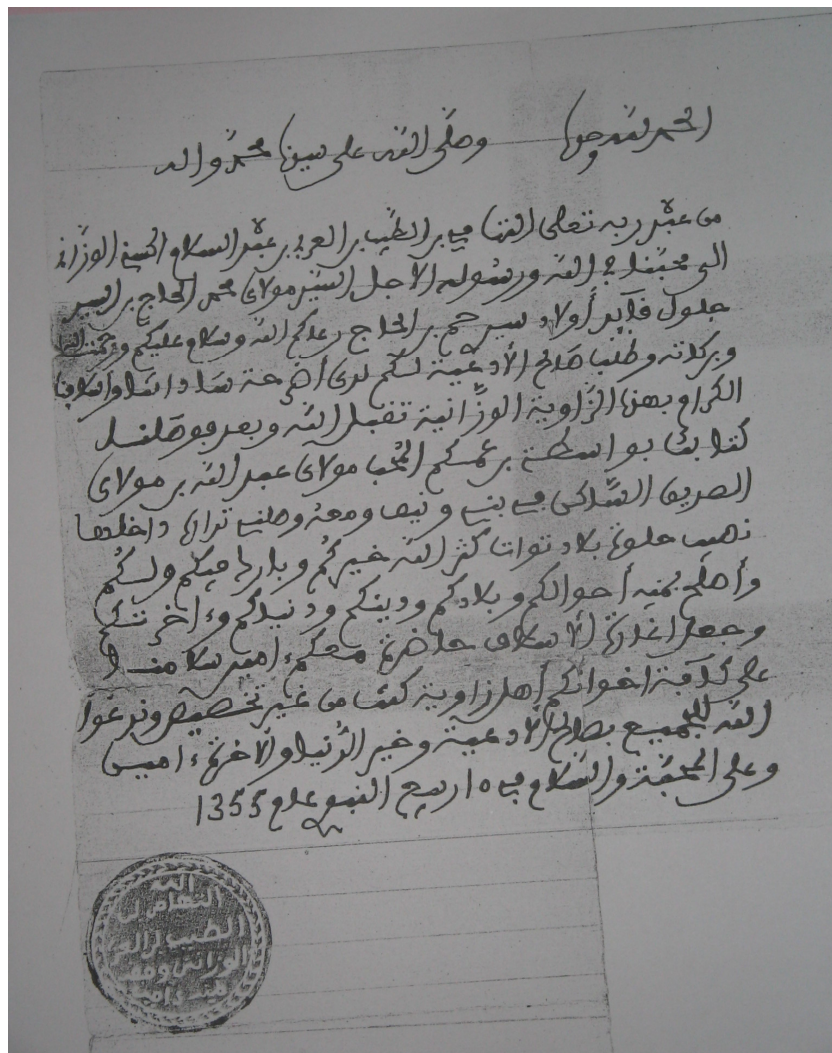 الحمد لله وحده وصلى الله على سيدنا محمد وآله
من عبد ربه تعالى التهامي بن الطيب بن العربي بن عبد السلام الحسني الوزاني
الى محبنا في الله ورسوله الاجل السيد مولاي محمد الحاج بن السيد
جلول قايد أولاد سيدي حم بن الحاج رعاكم الله وسلام عليكم ورحمت الله
وبركاته وطلب صالح الأدعية لكم لدى أضرحة ساداتنا وأسلافنا
الكرام بهذه الزاوية الوزانية تقبل الله وبعد فوصلنا
كتابك بواسطة بن عمكم المحب مولاي عبد الله بن مولاي
الصديق الساكن في بني ونيف ومعه وطنيه ترارة داخلها
نصيب حلوة بلاد توات كثر الله خيركم وبارك فيكم ولكم
وأصلح بمنه أحوالكم وبلادكم ودينكم ودنيكم وءاخرتكم
وجعل اغارة الأسلاف حاضرة معكم ءامين سلامنا
على كافة اخوانكم أهل زاوية كنت من غير تخصيص وندعوا
الله للجميع بصالح الأدعية وخير الدنيا والآخرة ءامين
وعلى المحبة والسلام في ٥ ربيع النبوي عام 1355
الله
التهامي بن
الطيب بن العربي
الوزاني